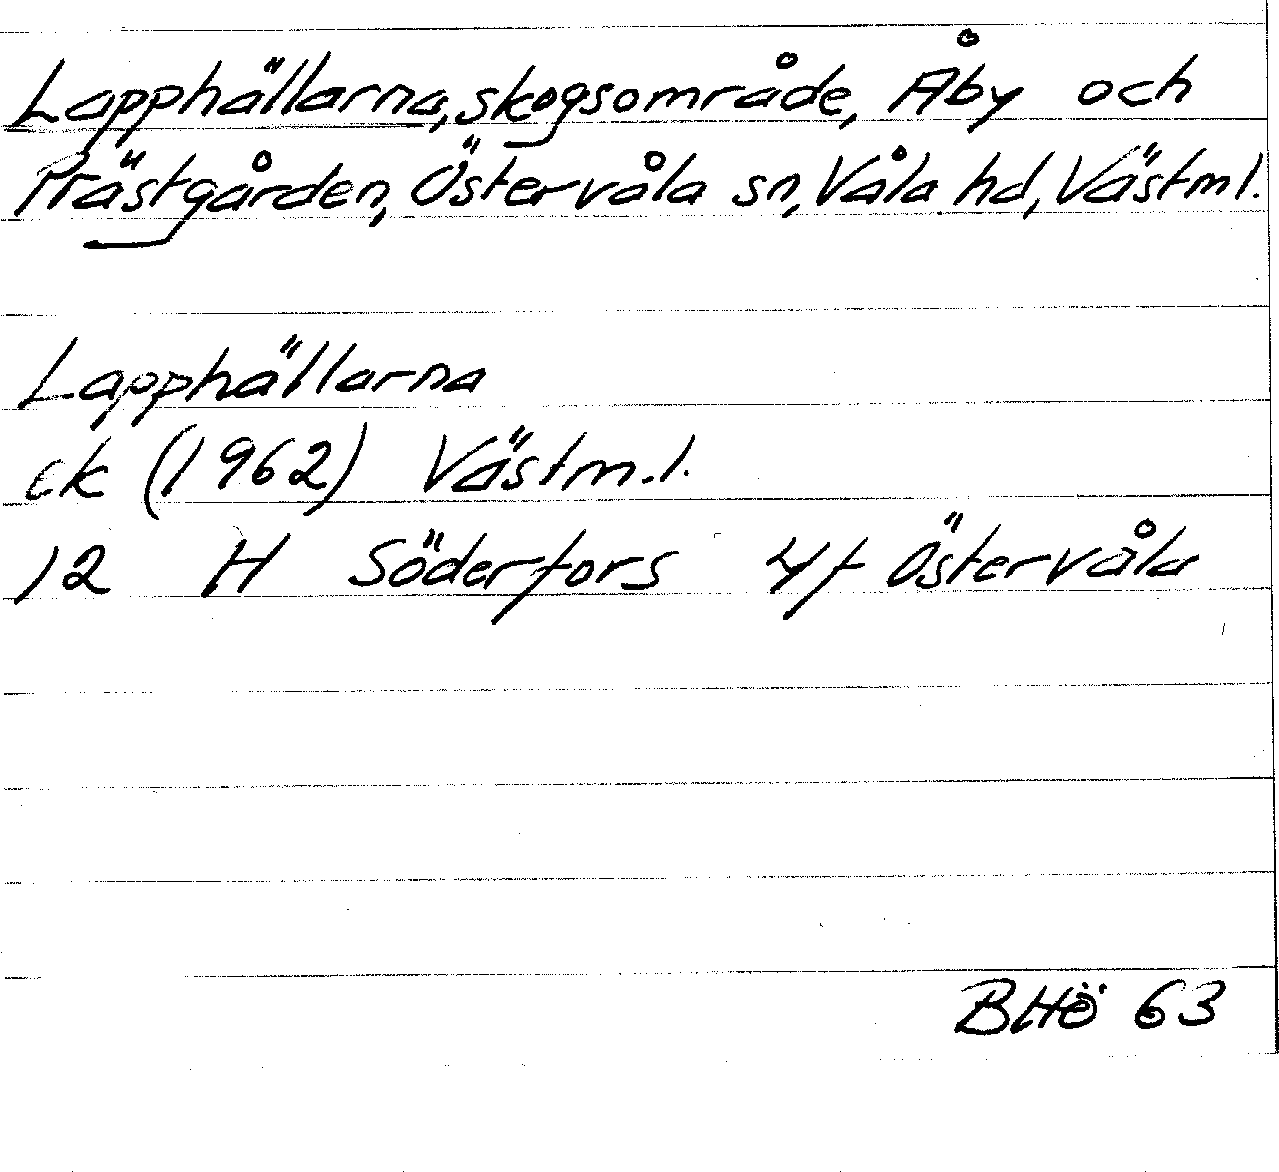 Lapphällarna, skogsområde, Åby och
Prästgården, Östervåla sn, Våla hd, Västml.
Lapphällarna
ek (1962) Västm.l.
12 H Söderfors 4f Östervåla
BHö 63